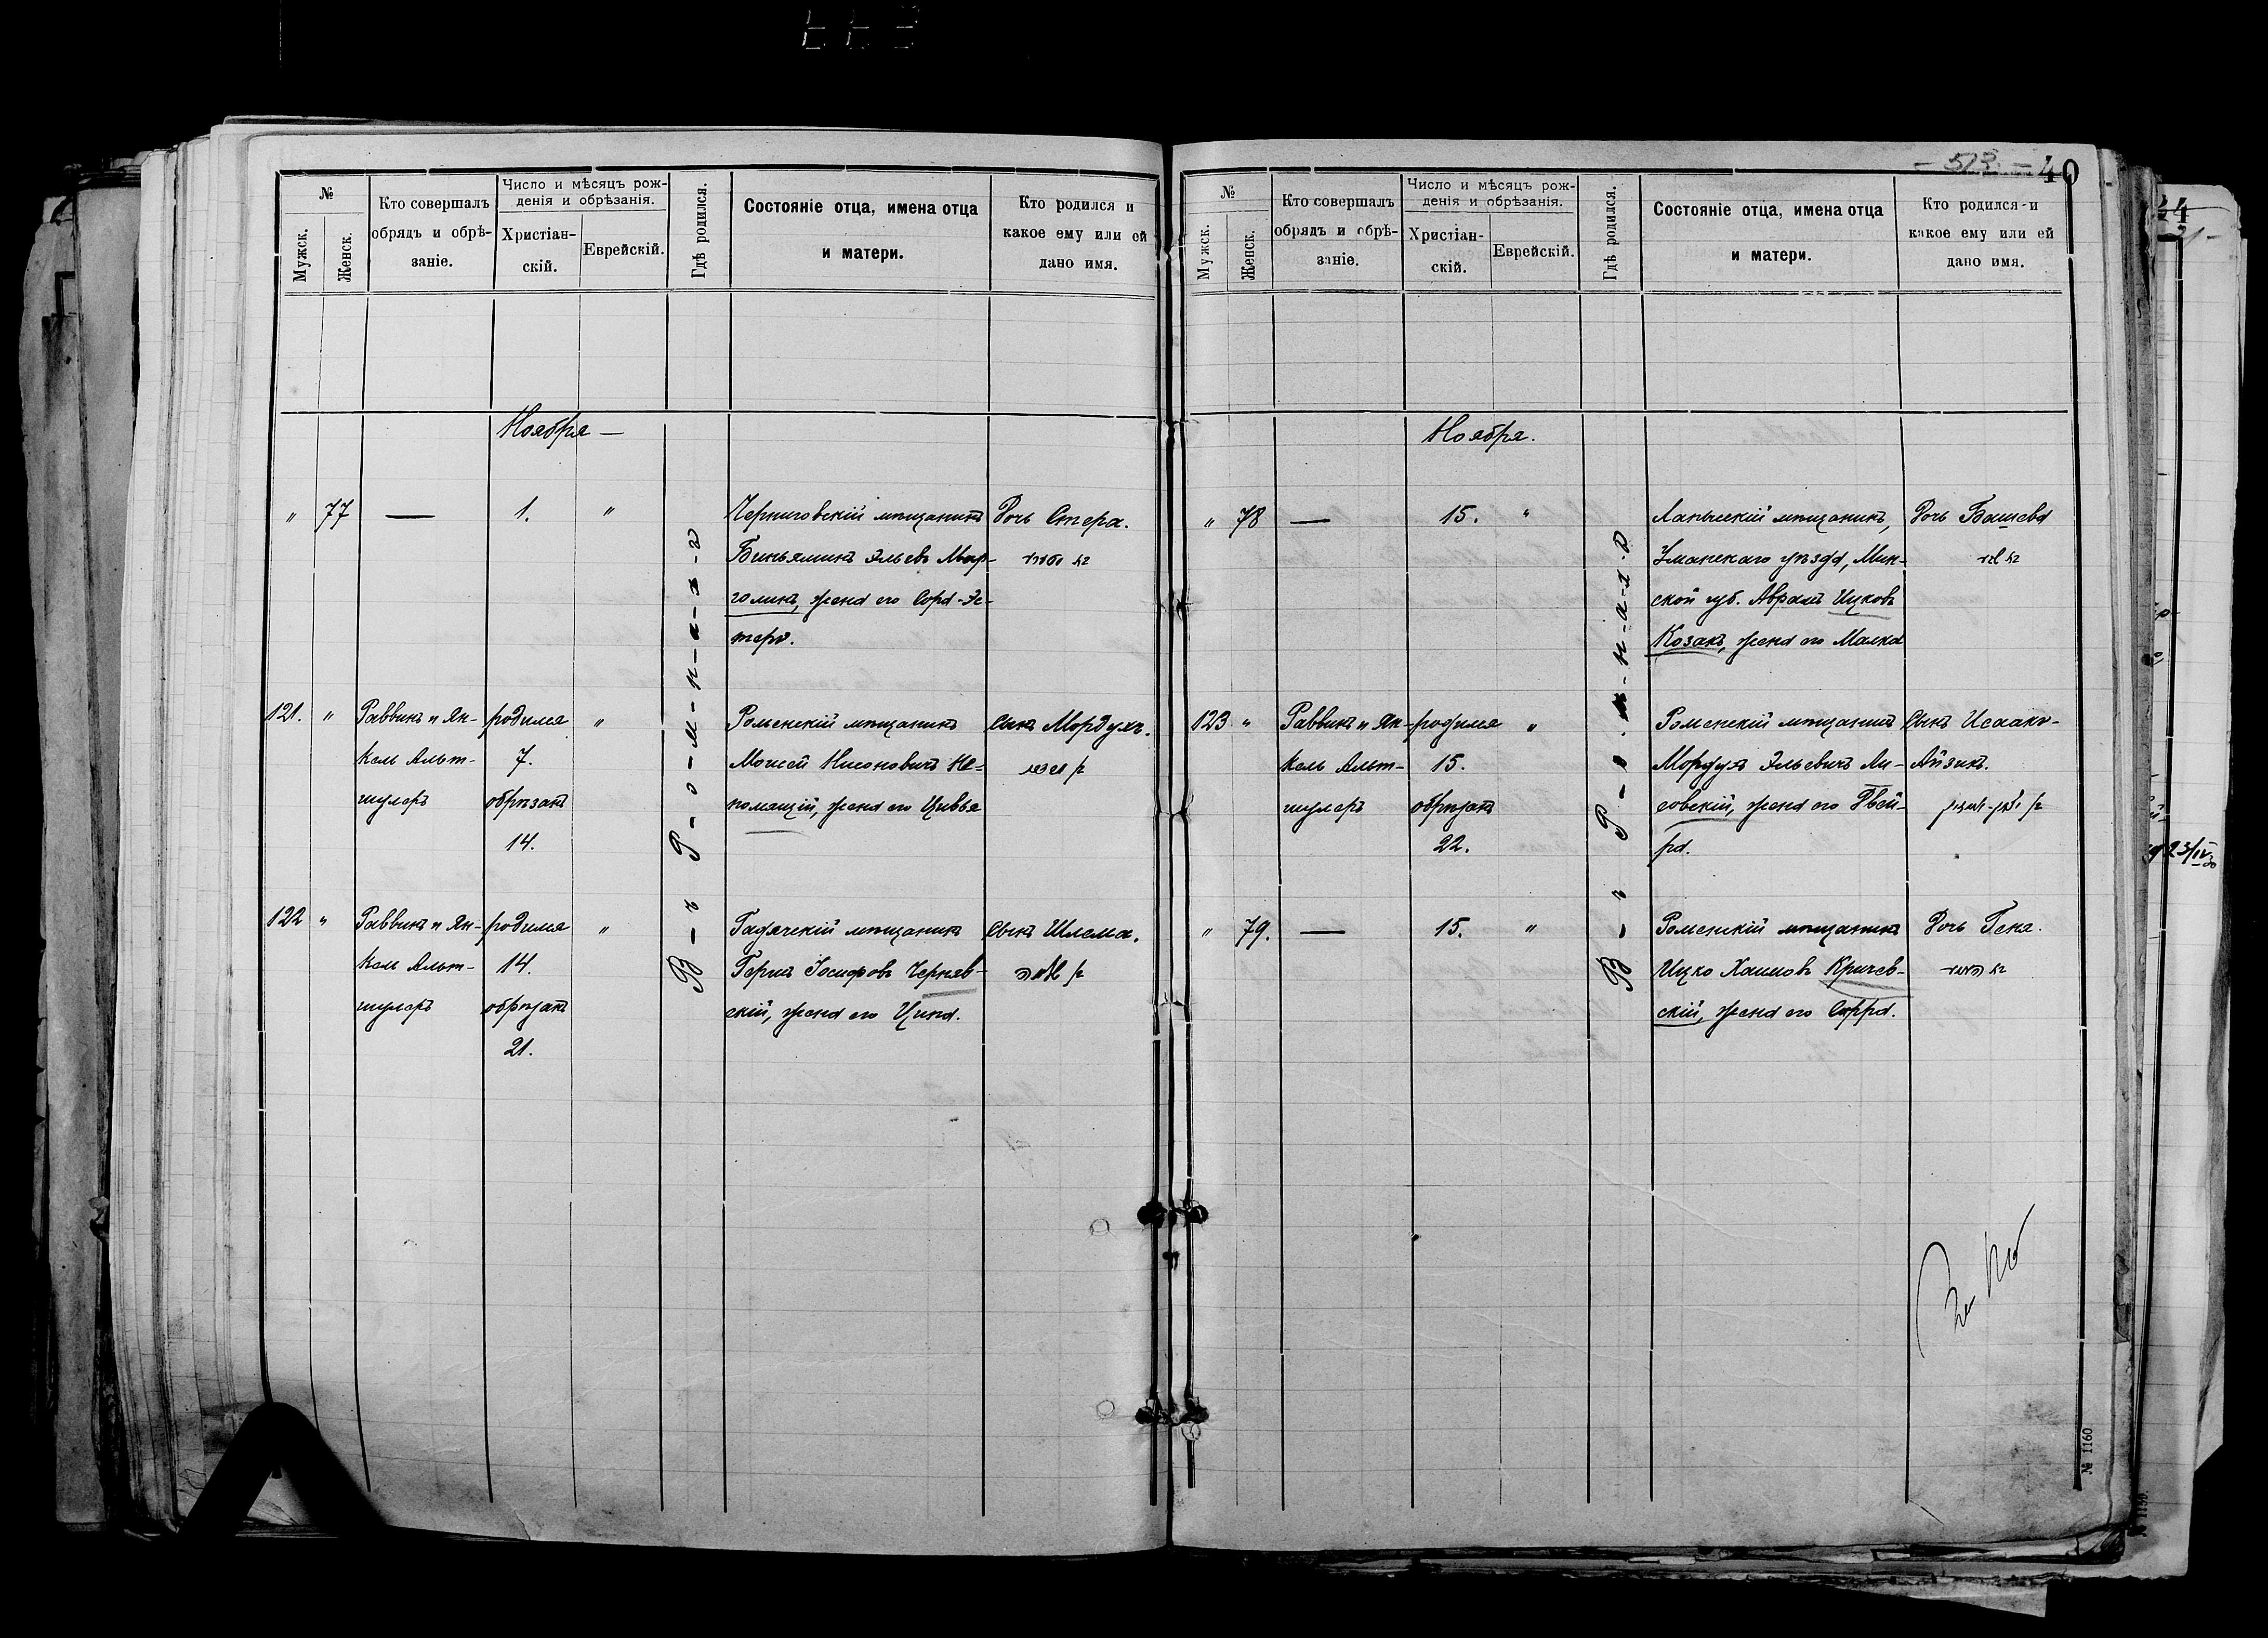 №
Мужск.
Женск.
Кто совершалъ
обрядъ и обрѣ-
заніе.
Число и мѣсяцъ рож-
денія и обрѣзанія.
Христіан-
скій.
Еврейскій.
Гдѣ родился.
Состояніе отца, имена отца
и матери.
Кто родился и
какое ему или ей
дано имя.
Ноября —
В-ъ Р-о-м-н-а-х-ъ
„ 77 — 1. „
Черниговскій мѣщанинъ
Биньяминъ Эльевъ Мар-
голинъ, жена его Сора-Эс-
теръ.
Дочь Стера.
121. „
Раввинъ и Ян-
кель Альт-
шулеръ
родился
7.
обрѣзанъ
14.
„
Роменскій мѣщанинъ
Моисей Нисоновичъ Не-
помящій, жена его Цивья
Сынъ Мордухъ.
122 „
Раввинъ и Ян-
кель Альт-
шулеръ
родился
14.
обрѣзанъ
21.
„
Гадячскій мѣщанинъ
Герша Іосифовъ Черняв-
скій, жена его Ципа.
Сынъ Шлема.
40
№
Мужск.
Женск.
Кто совершалъ
обрядъ и обрѣ-
заніе.
Число и мѣсяцъ рож-
денія и обрѣзанія.
Христіан-
скій.
Еврейскій.
Гдѣ родился.
Состояніе отца, имена отца
и матери.
Кто родился и
какое ему или ей
дано имя.
Ноября.
В-ъ Р-о-м-н-а-х-ъ
„ 78 — 15. „
мѣщанинъ,
уѣзда, Мин-
ской губ. Авраамъ Ицковъ
Козакъ, жена его Малка
Дочь Башева
123 „
Раввинъ и Ян-
кель Альт-
шулеръ
родился
15.
обрѣзанъ
22.
„
Роменскій мѣщанинъ
Мордухъ Эльевичъ Ли-
совскій, жена его Двей-
ра.
Сынъ Исаакъ-
Айзикъ.
יצחק-אייזיק
„ 79. — 15. „
Роменскій мѣщанинъ
Ицко Хаимовъ Кричев-
скій, жена его Сорра.
Дочь Геня.
№ 1160